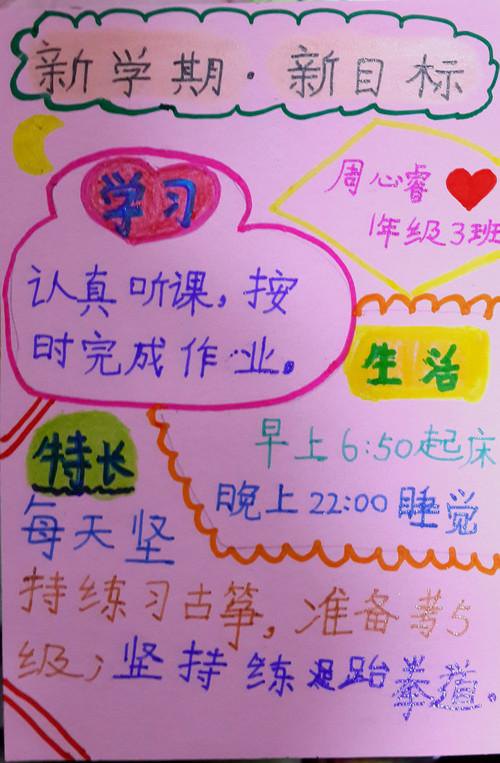 新学期·新目标
周心睿
1年级3班
学习
认真听课，按
时完成作业。
生活
早上6:50起床
晚上22:00睡觉
特长
每天坚
持练习古筝，准备考5
级；坚持练跆拳道.